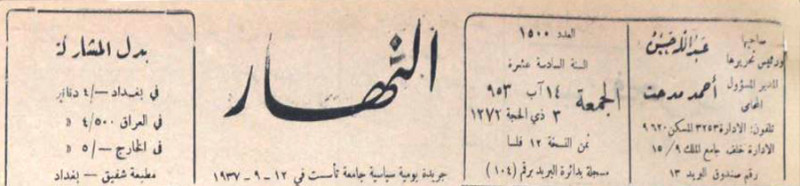 صاحبها
ورئيس تحريرها
عبدالله حسن
المدير المسؤول
المحامي
أحمد مدحت
تلفون: الادارة ٣٢٥٣ المسكن ٩٦٢٠
الادارة خلف جامع الملك ٩/ ١٥
رقم صندوق البريد ١٣
العدد ١٥٠٠
السنة السادسة عشرة
الجمعة
١٤ آب ٩٥٣
٣ ذي الحجة ١٢٧٢
ثمن النسخة ١٢ فلسا
مسجلة بدائرة البريد برقم (١٠٤)
النهار
جريدة يومية سياسية جامعة تأسست في ١٢-٩-١٩٣٧
بدل المشاركة
في بغداد —/٤ دنانير
في العراق ٤/٥٠٠ «
في الخارج —/٥ «
مطبعة شفيق - بغداد